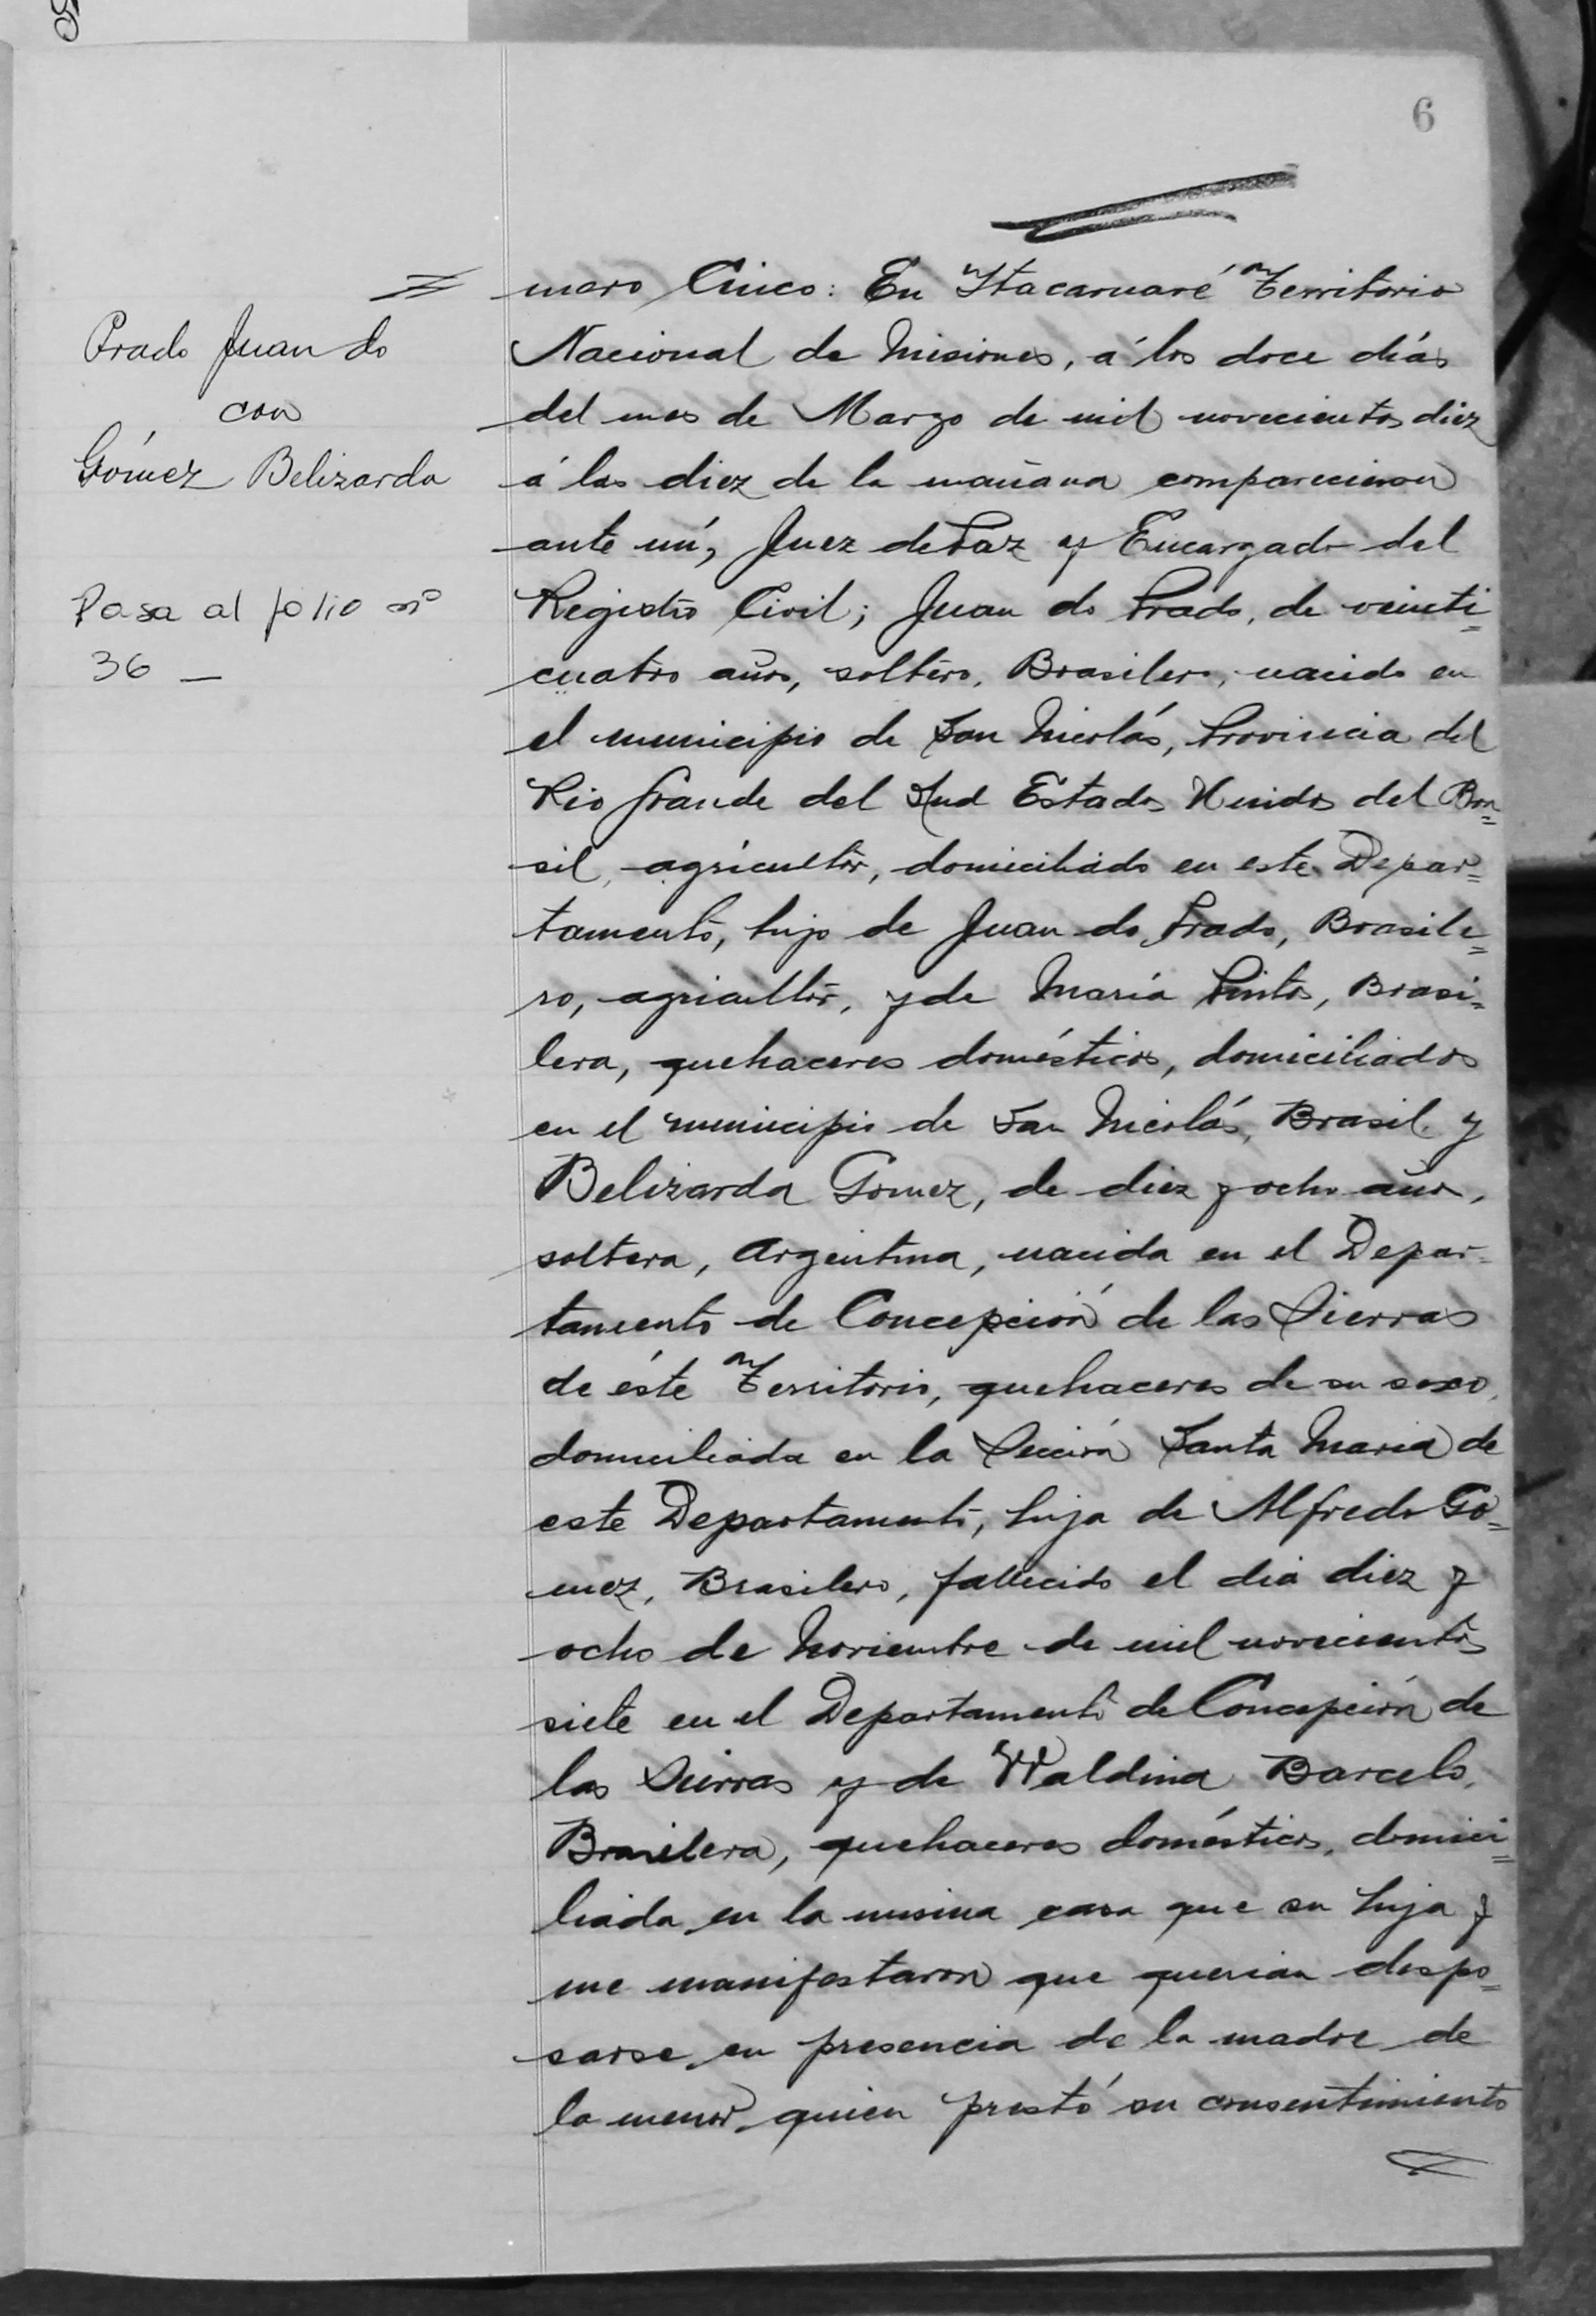 6
Prado Juan do
con
Gómez Belizarda
Pasa al folio nº
36 —
mero Cinco: En Itacaruaré Territorio
Nacional de Misiones, á los doce días
del mes de Marzo de mil novecientos diez
á las diez de la mañana comparecieron
ante mí, Juez de Paz y Encargado del
Registro Civil; Juan do Prado, de veinti=
cuatro años, soltero, Brasilero, nacido en
el municipio de San Nicolás, Provincia del
Rio Grande del Sud Estados Unidos del Bra=
sil, agricultor, domiciliado en este Depar=
tamento, hijo de Juan do Prado, Brasile=
ro, agricultor, y de María Pinto, Brasi=
lera, quehaceres domésticos, domiciliados
en el municipio de San Nicolás, Brasil y
Belizarda Gomez, de diez y ocho años,
soltera, Argentina, nacida en el Depar-
tamento de Concepción de las Sierras
de éste Territorio, quehaceres de su sexo,
domiciliada en la Sección Santa Maria de
este Departamento, hija de Alfredo Go=
mez, Brasilero, fallecido el dia diez y
ocho de Noviembre de mil novecientos
siete en el Departamento de Concepción de
las Sierras y de Waldina Barcelo,
Brasilera, quehaceres domésticos, domici=
liada en la misma casa que su hija y
me manifestaron que querian despo=
sarse en presencia de la madre de
la menor quien prestó su consentimiento